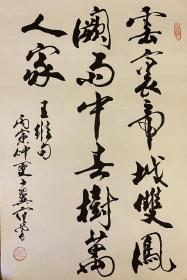 雲裏帝城雙鳳
闕雨中春樹萬
人家
王維句
仲夏